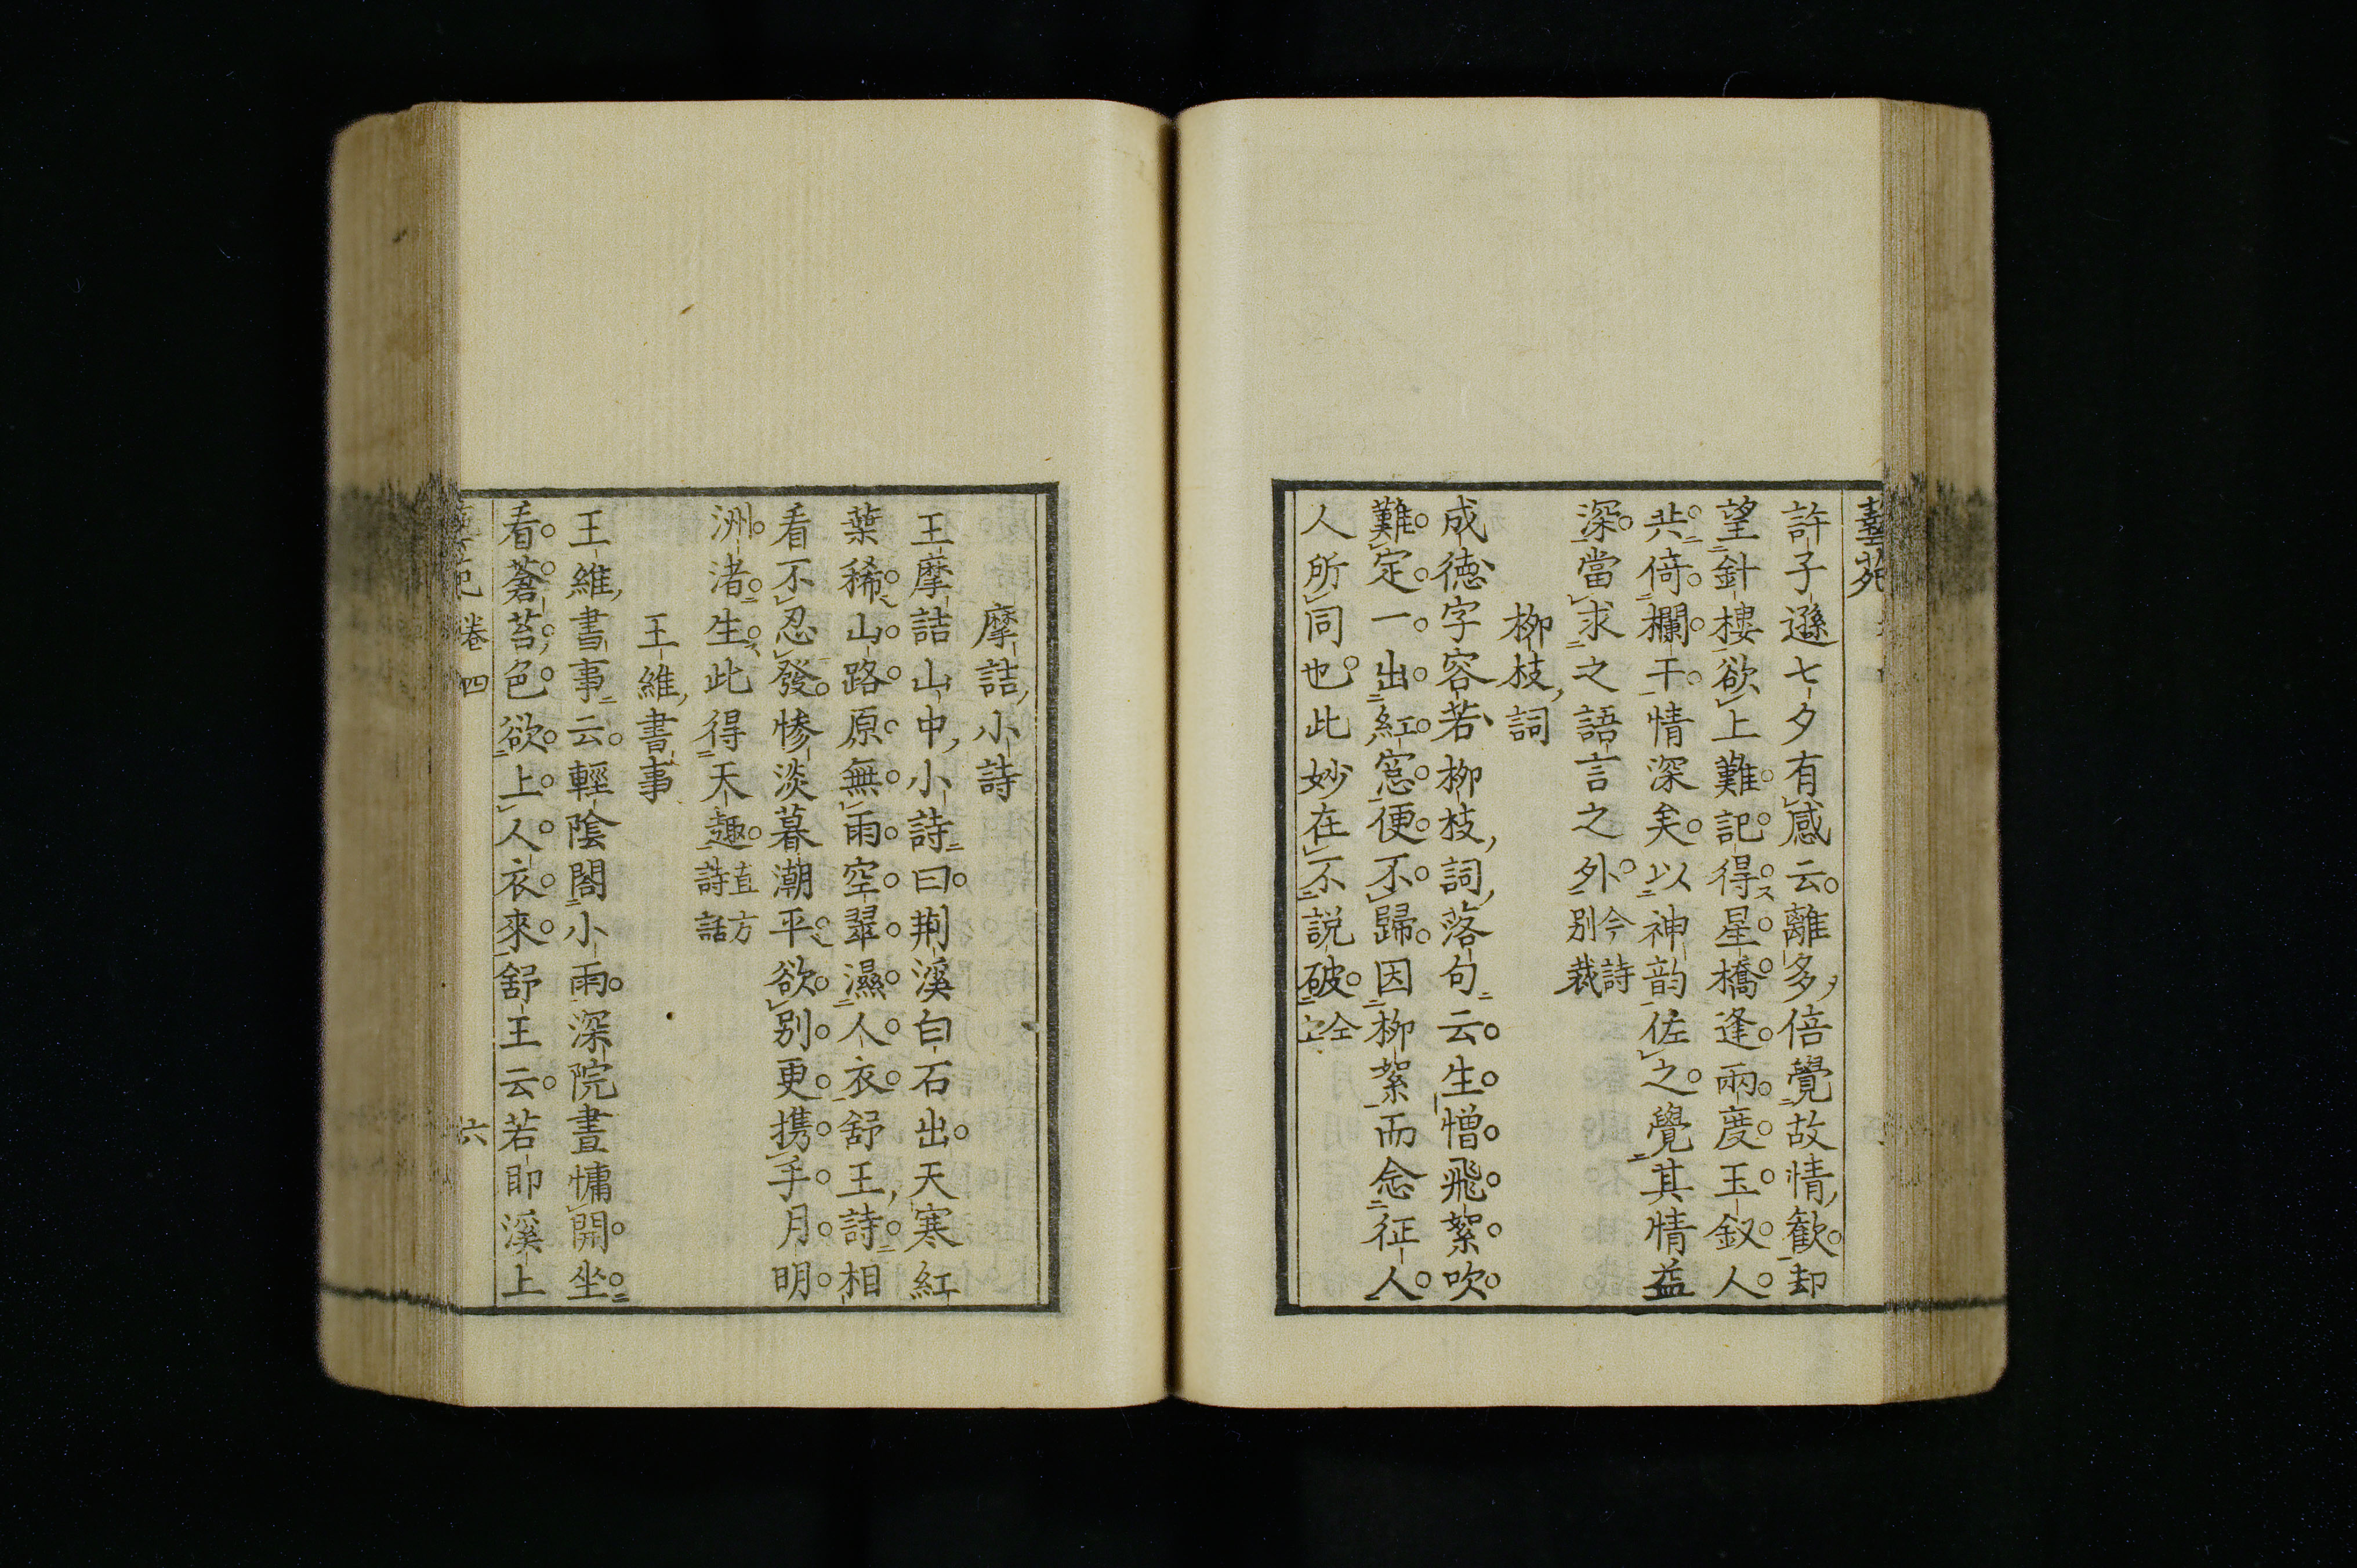 藝苑
許子遜七夕有感云離多倍覺故情歓却
望針樓欲上難記得星橋逢兩度玉釵人
共倚欄干情深矣以神韵佐之覺其情益
深當求之語言之外今詩別裁
柳枝詞
成徳字容若柳枝詞落句云生憎飛絮吹
難定一出紅窓便不歸因柳絮而念征人
人所同也此妙在不説破仝上
摩詰小詩
王摩詰山中小詩曰荆溪白石出天寒紅
葉稀山路原無雨空翠濕人衣舒王詩相
看不忍發惨淡暮潮平欲別更携手月明
洲渚生此得天趣直方詩話
王維書事
王維書事云輕陰閣小雨深院晝慵開坐
看蒼苔色欲上人衣來舒王云若即溪上
卷四 六